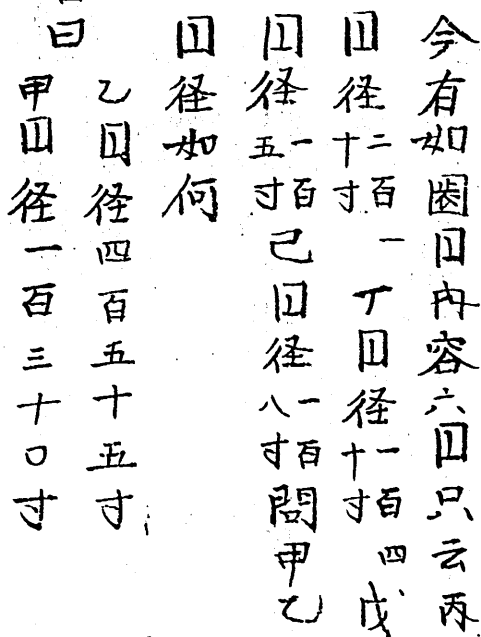 今有如圏円内容六円只云丙
円径二百一十寸丁円径一百四十寸戊
円径一百五寸己円径一百八寸問甲乙
円径如何
曰
乙円径四百五十五寸
甲円径一百三十〇寸